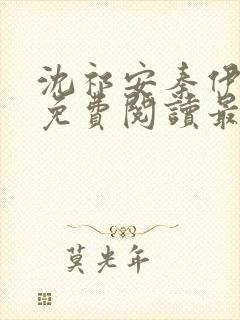 沈祁安秦伊
免費閱讀最
莫光年